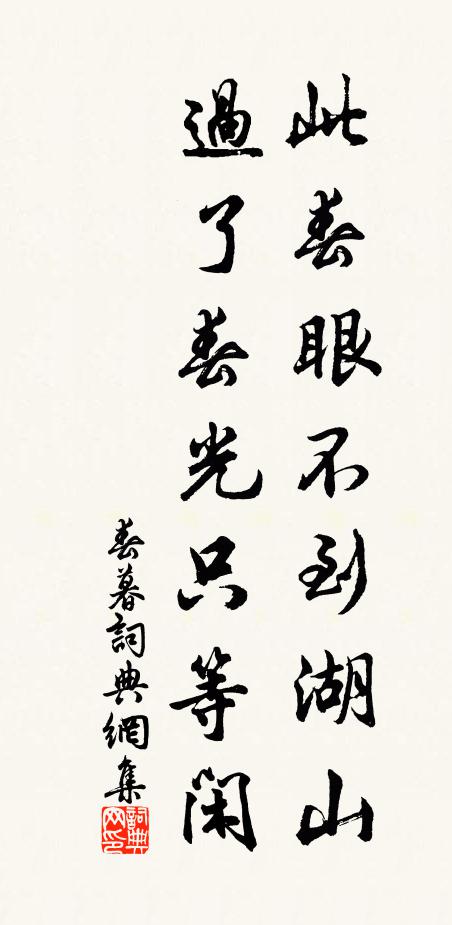 此春眼不到湖山
過了春光只等閑
春暮詞典網集
詞典
网印